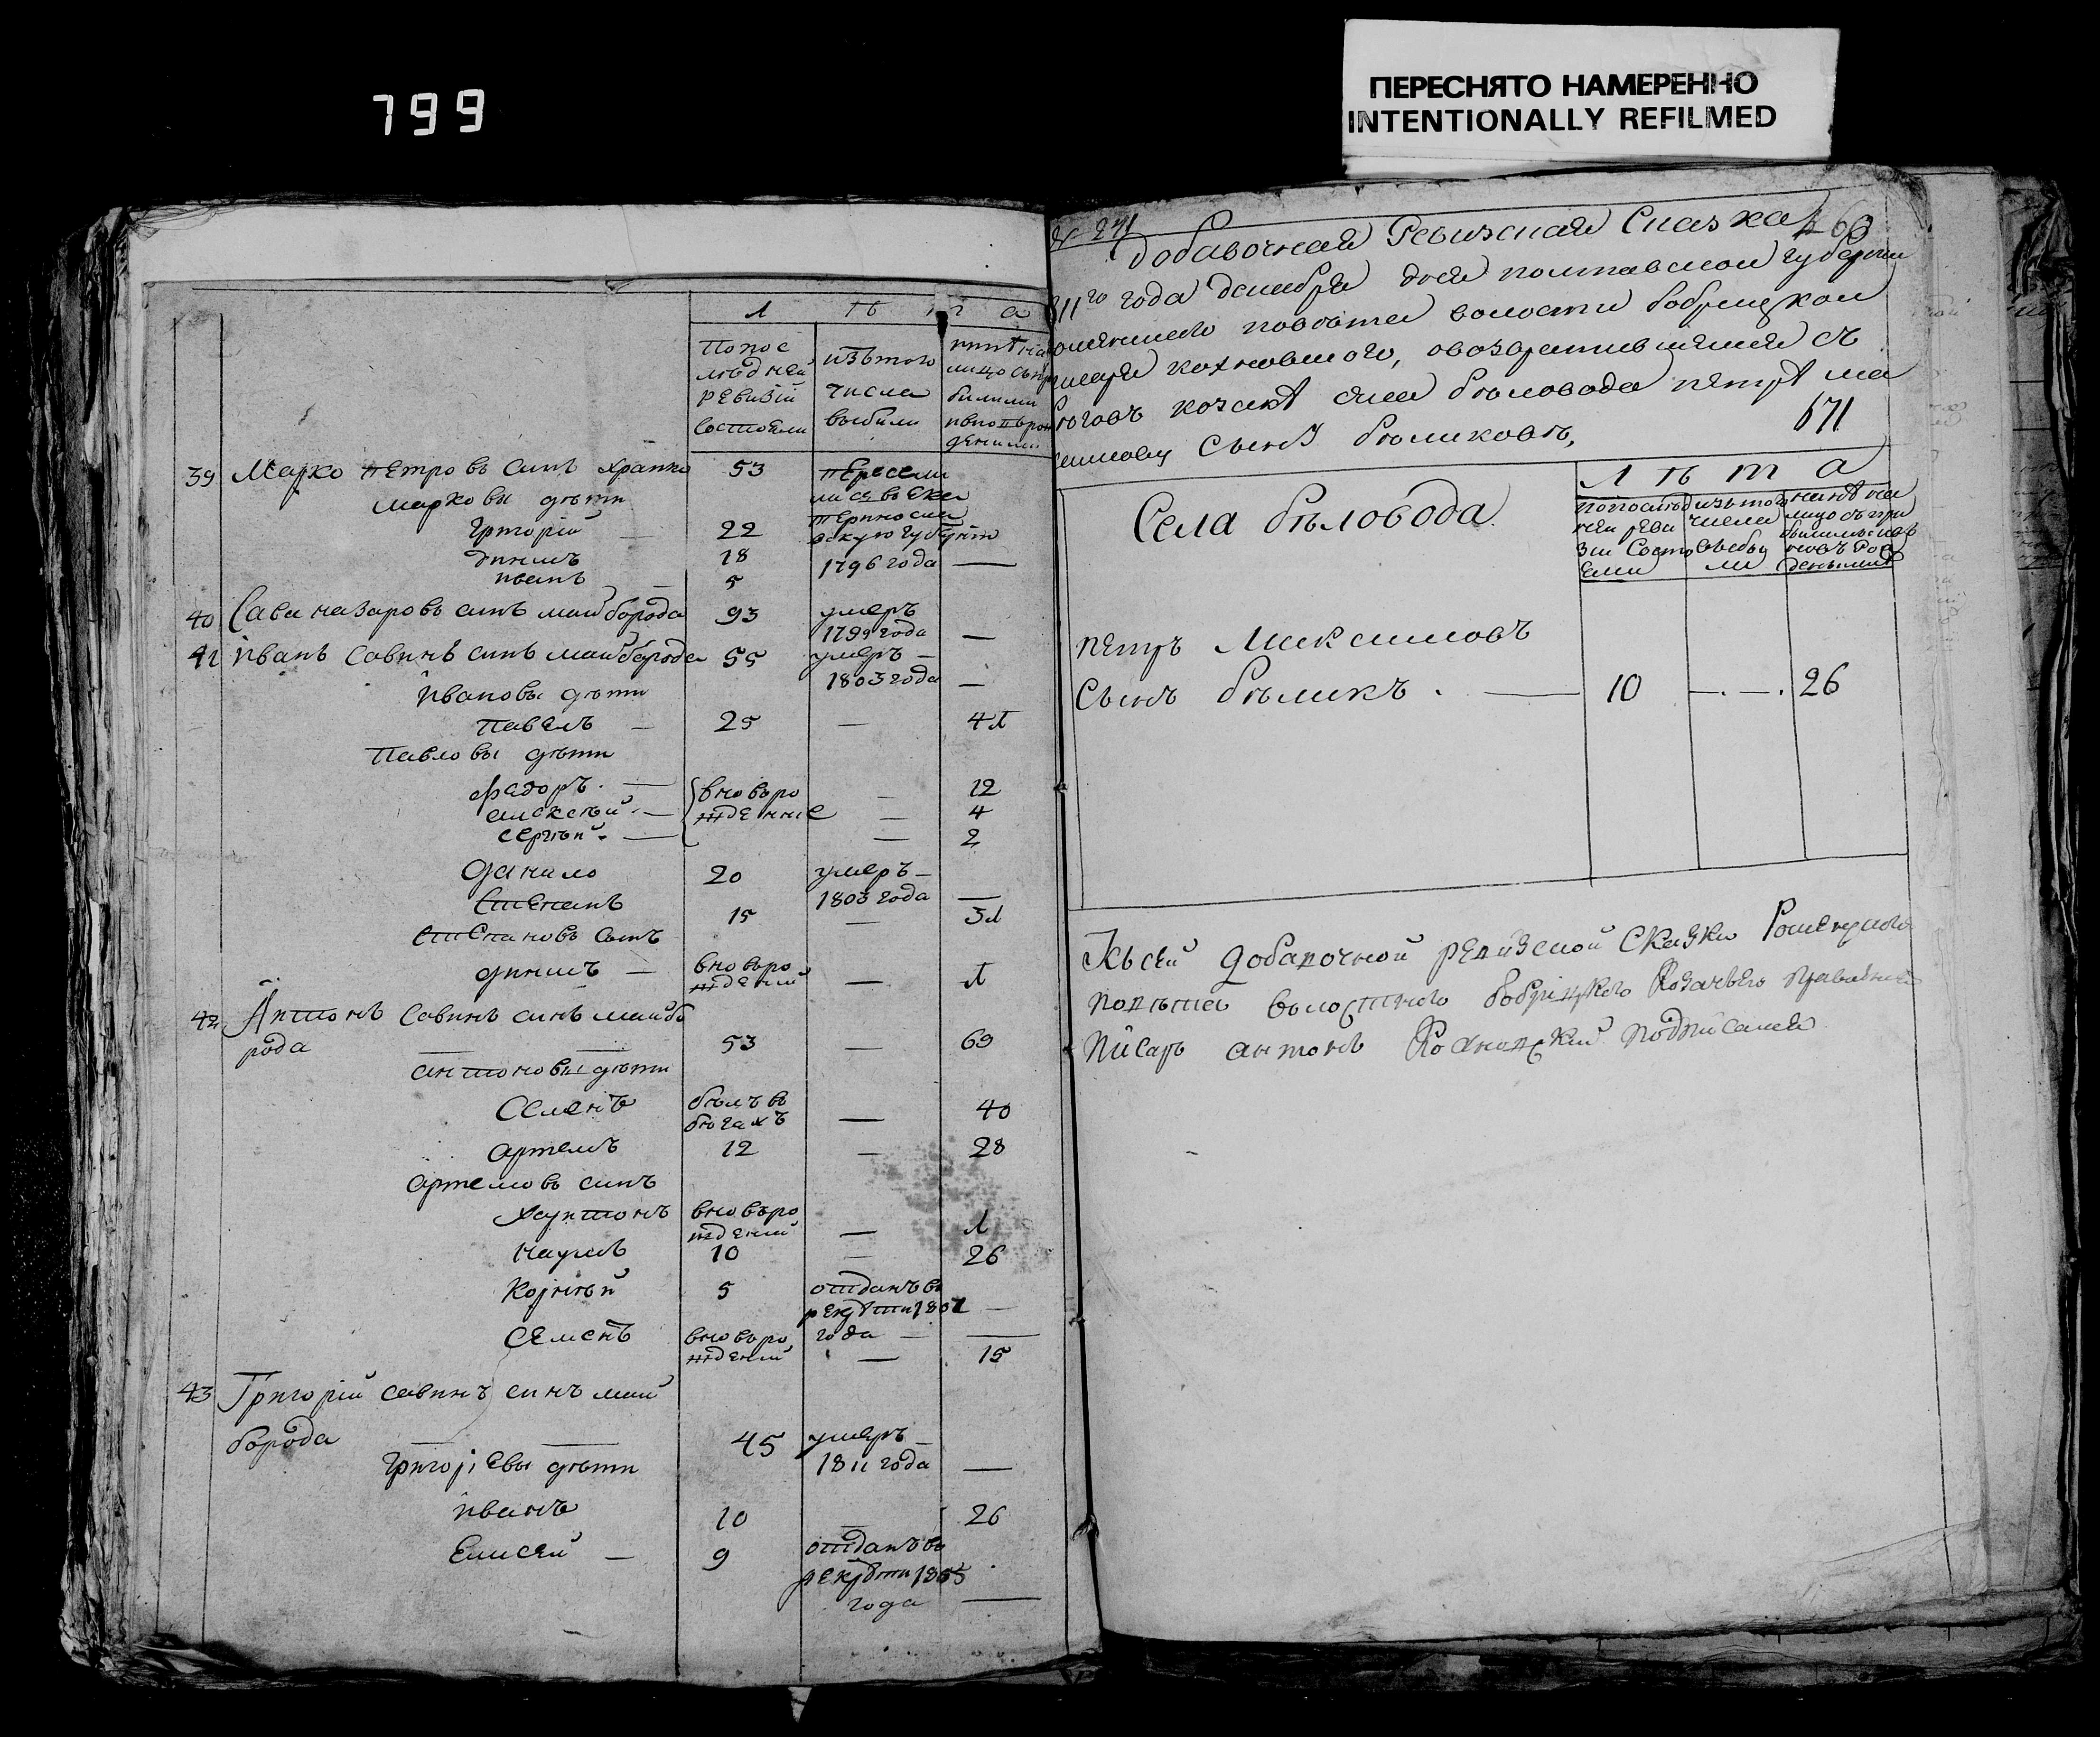 799
ПЕРЕСНЯТО НАМЕРЕННО
INTENTIONALLY REFILMED
Л ѣ т а
Попос
лѣдней
ревизіи
состояли
изътого
числа
выбыли
нинѣ на
лицо съпр
былими
ивновьрож
денними
39 Марко Петровъ синъ Храпко 53 пересели
Марковы дѣти лися въ Ека
теринослав
Григорій 22 скую губернію
1796 года —
18
иванъ — 5
40 Сава назаровъ синъ майборода 93 умеръ
1799 года —
41 Иванъ Савинъ синъ майборода 55 умеръ —
1803 года —
Ивановы дѣти
Павелъ — 25 — 41
Павловы дѣти
Федоръ — вновьро — 12
алексѣй — жденніе — 4
сергѣй — — 2
Данило 20 умеръ —
1803 года —
Степанъ 15 — 31
Степановъ синъ
вновьро
жденій — 1
42 Антонъ Савинъ синъ майбо
рода — — 53 — 69
антоновы дѣти
Семенъ былъ въ
бѣгахъ — 40
артемъ 12 — 28
артемовъ синъ
Харитонъ вновьро
жденій — 1
наумъ 10 — 26
Корнѣй 5 отданъ въ
рекруты 1807 —
года — —
Семенъ вновьро
жденій — 15
43 Григорій савинъ синъ май
борода — — 45 умеръ —
1811 года —
Григоріевы дѣти
иванъ 10 — 26
Елисей — 9 отданъ въ
рекруты 1805
года —
№ 271
Добавочная Ревизская Сказка 460
811го года декабря дня полтавской губернии
роменского повѣта волости бобрицкой
писаря кохновского, овозвратившемся съ
бѣговъ козакѣ села бѣловода петрѣ ма
ксимову сынѣ бѣликовѣ,
671
Села бѣловода
Л ѣ т а
попослѣд
ней реви
зии Состо
яли
изътого
числа
выбы
ли
нинѣ на
лицо съпри
былыми иъв
новъ Рож
денными
петръ Максимовъ
Сынъ бѣликъ . — 10 —.—. 26
Къ сей добавочной ревизской Сказки Роменского
повѣта волостного бобрицкого Козачьего правленія
писарь антонъ Кохновский подписался